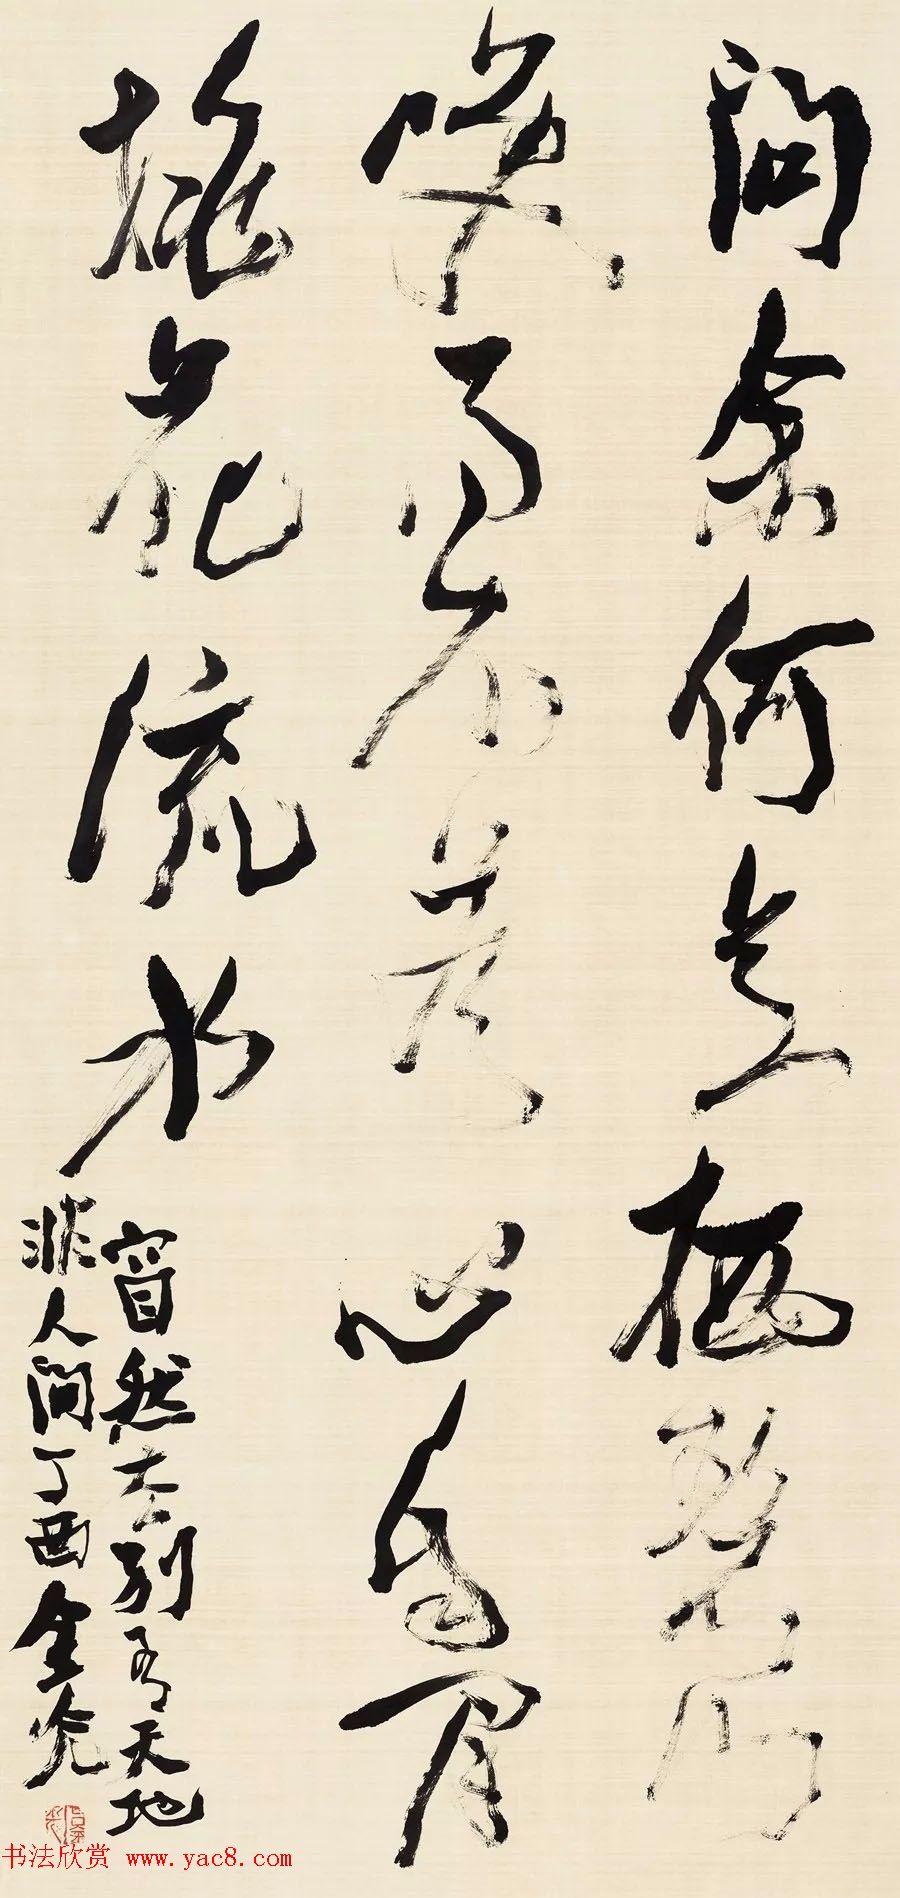 问余何意栖碧山
咲而不答心自閒
桃花流水
窅然去别有天地
非人间丁酉金
书法欣赏 www.yac8.com